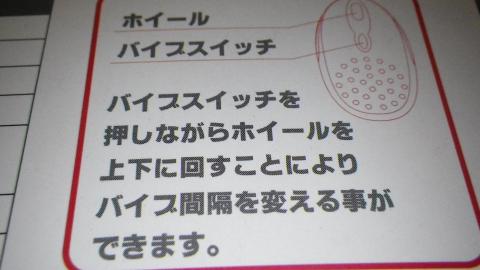 ホイール
バイブスイッチ
バイブスイッチを
押しながらホイールを
上下に回すことにより
バイブ間隔を変える事が
できます。